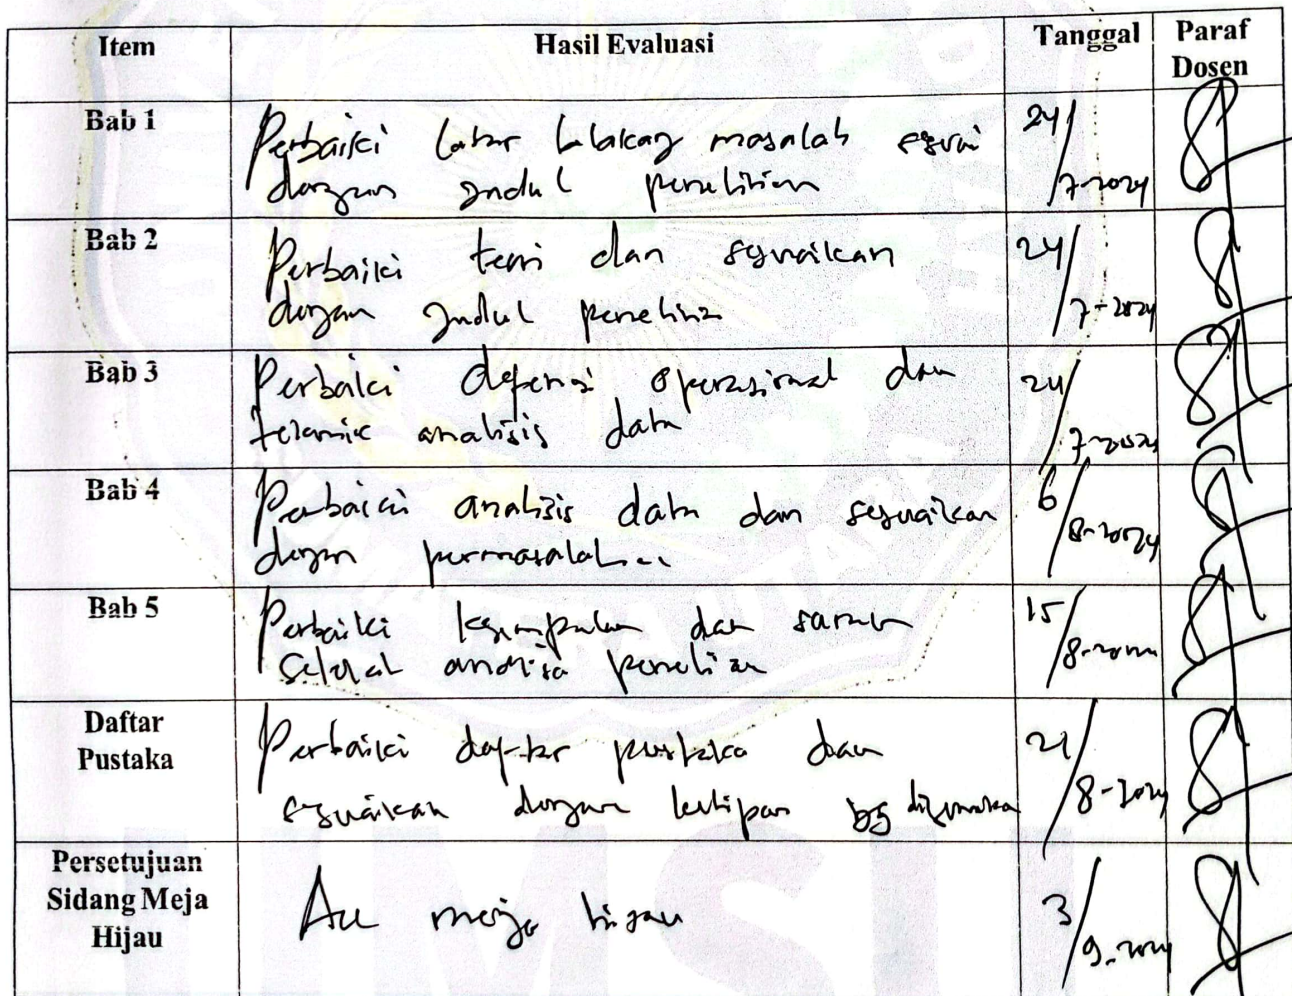 Item Hasil Evaluasi Tanggal Paraf
Dosen
Bab 1 Perbaiki latar belakang masalah sesuai 24/
dengan judul penelitian 7-2024
Bab 2 Perbaiki teori dan sesuaikan 24/
dengan judul penelitian 7-2024
Bab 3 Perbaiki definisi operasional dan 24/
teknik analisis data 7-2024
Bab 4 Perbaiki analisis data dan sesuaikan 6/
dengan permasalahan 8-2024
Bab 5 Perbaiki kesimpulan dan saran 15/
analisa penelitian 8-2024
Daftar
Pustaka
Perbaiki daftar pustaka dan 21/
sesuaikan dengan kutipan yg digunakan 8-2024
Persetujuan
Sidang Meja
Hijau
Acc meja hijau 3/
9-2024
UMSU